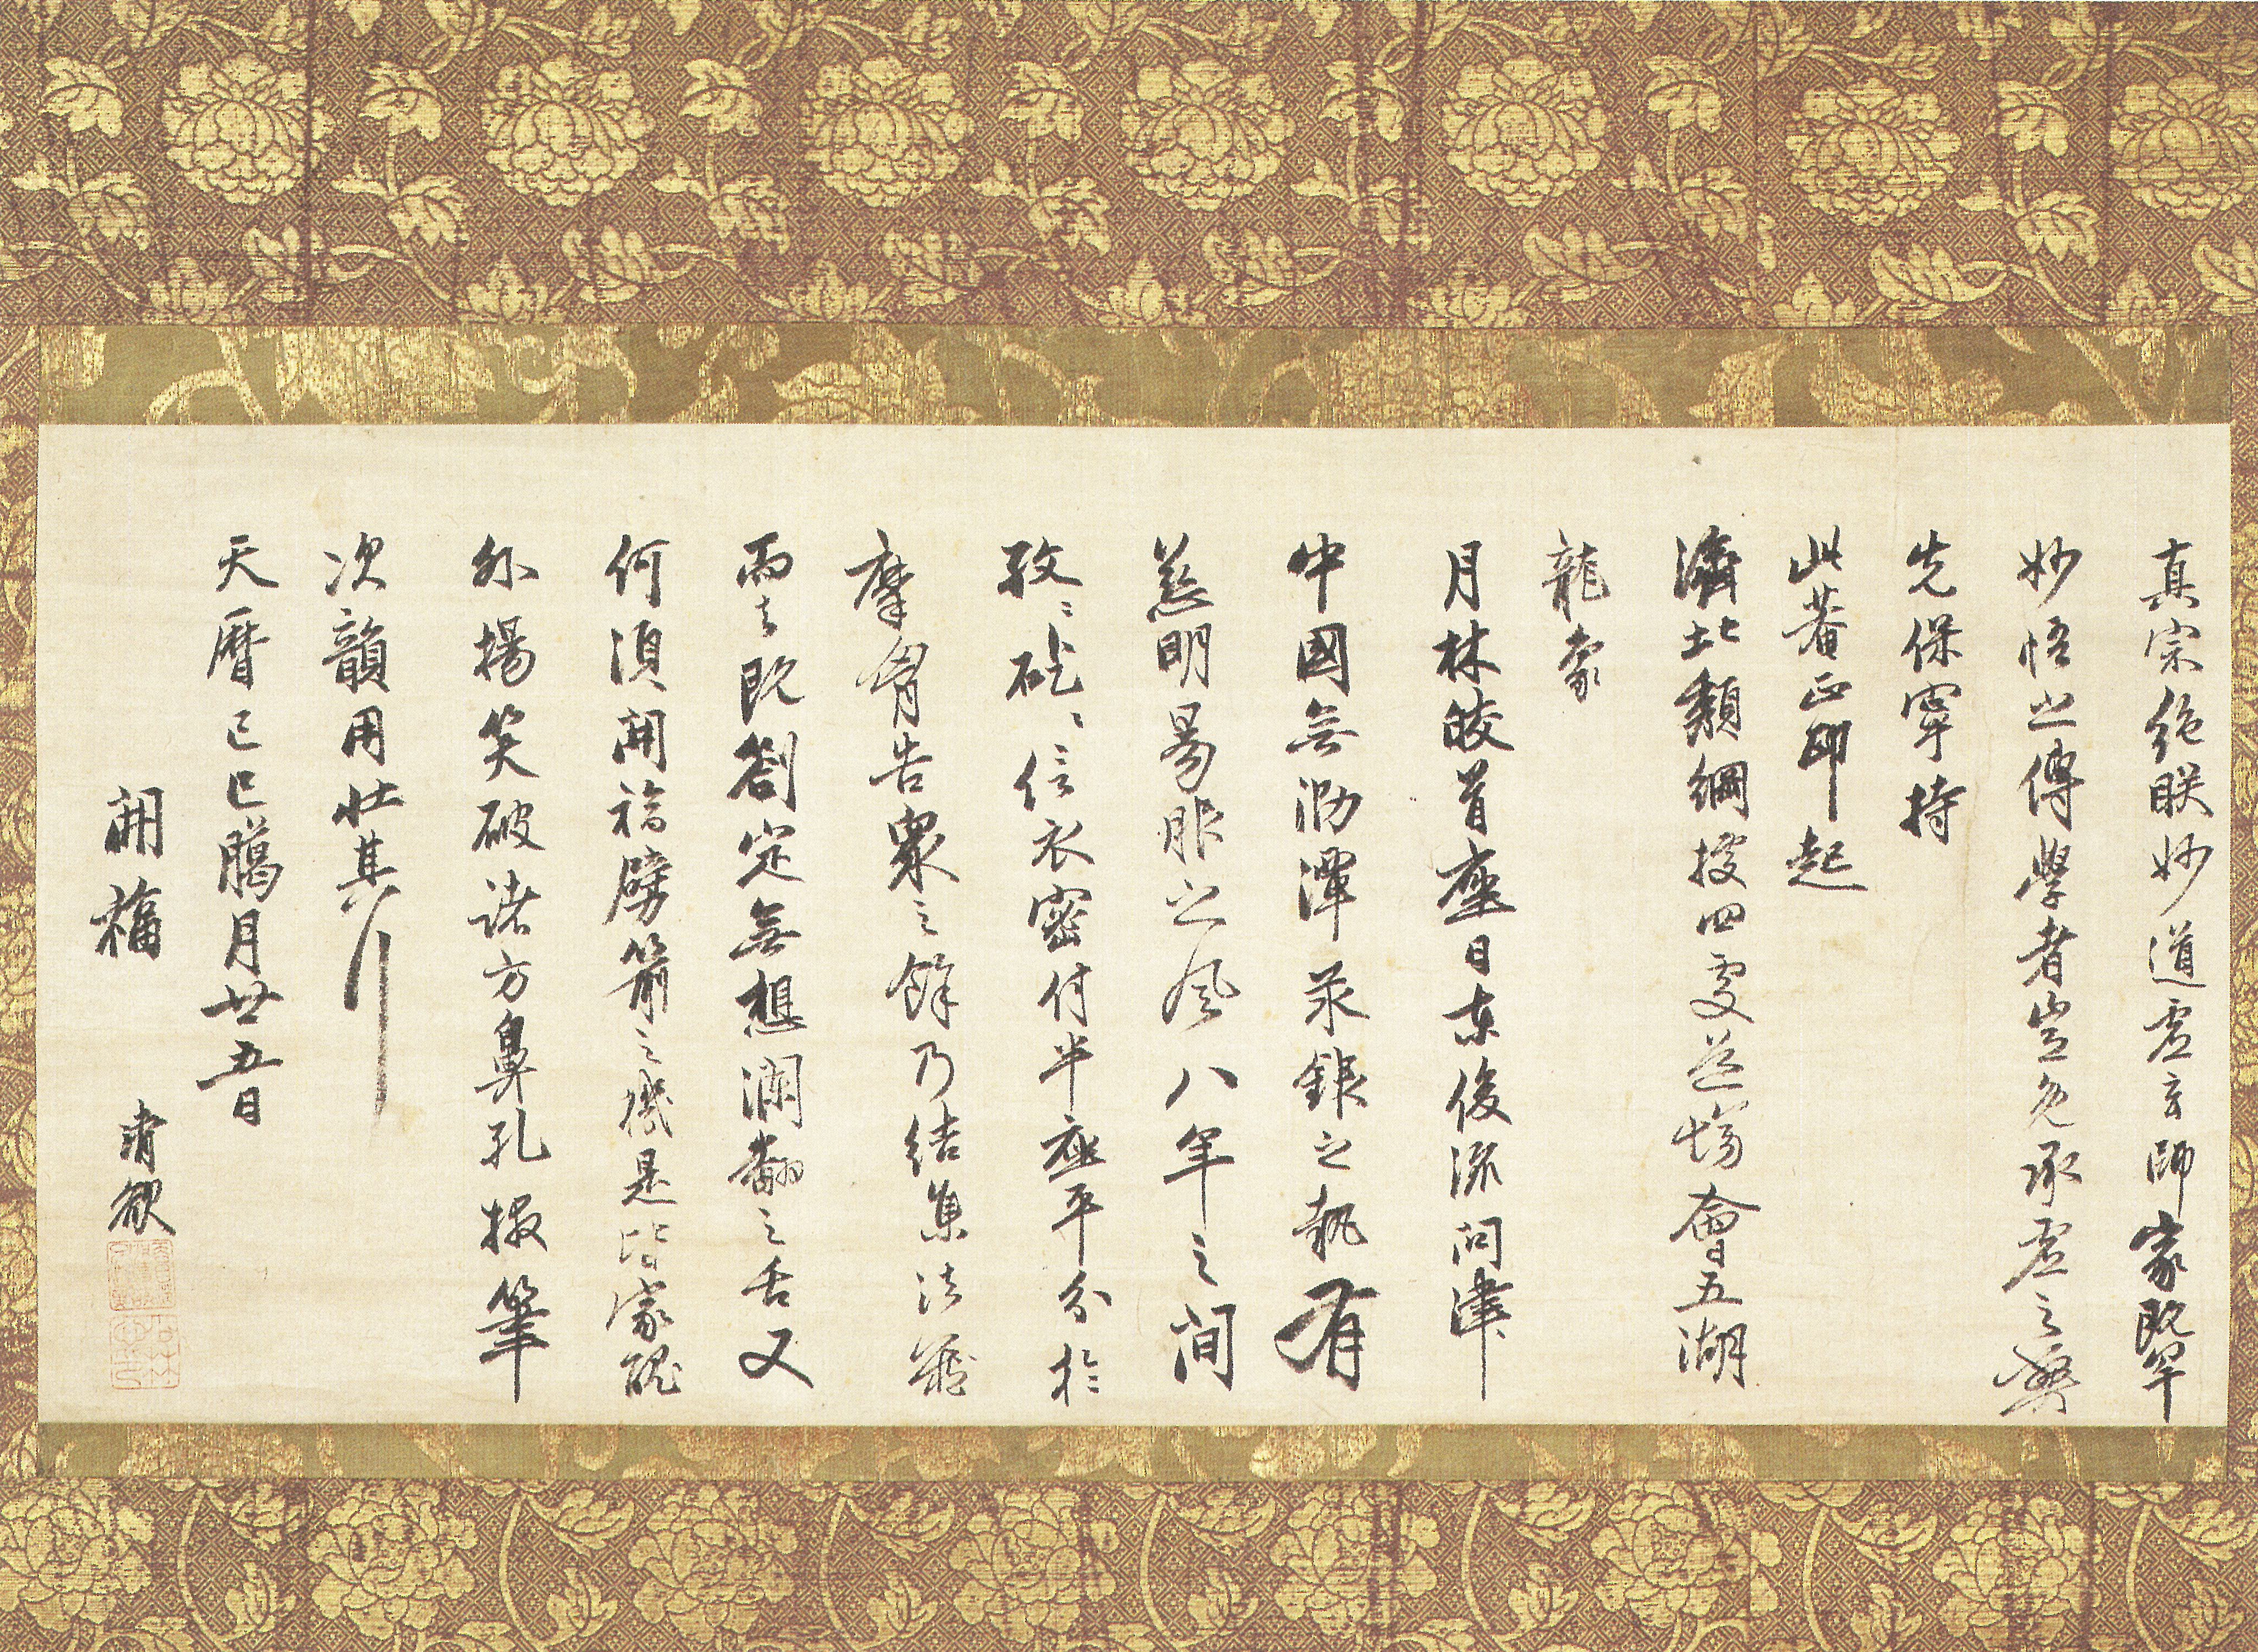 真宗絶朕妙道虚玄師家既罕
妙悟之傳學者豈免承虚之弊
先保寧持
此菴正印起
濟北頽綱據四處道場會五湖
龍象
月林皎首座日東俊流問津
中國無泐潭汞銀之執有
慈明晷眠之風八年之間
孜〻矻〻信衣密付半座平分於
摩竭告衆之餘乃結集法藏
而去既劄定無想瀾翻之舌又
何須開福劈箭之機是皆家醜
外揚笑破諸方鼻孔掇筆
次韻用壯其行
天曆己巳臈月廿五日
開福 清欲